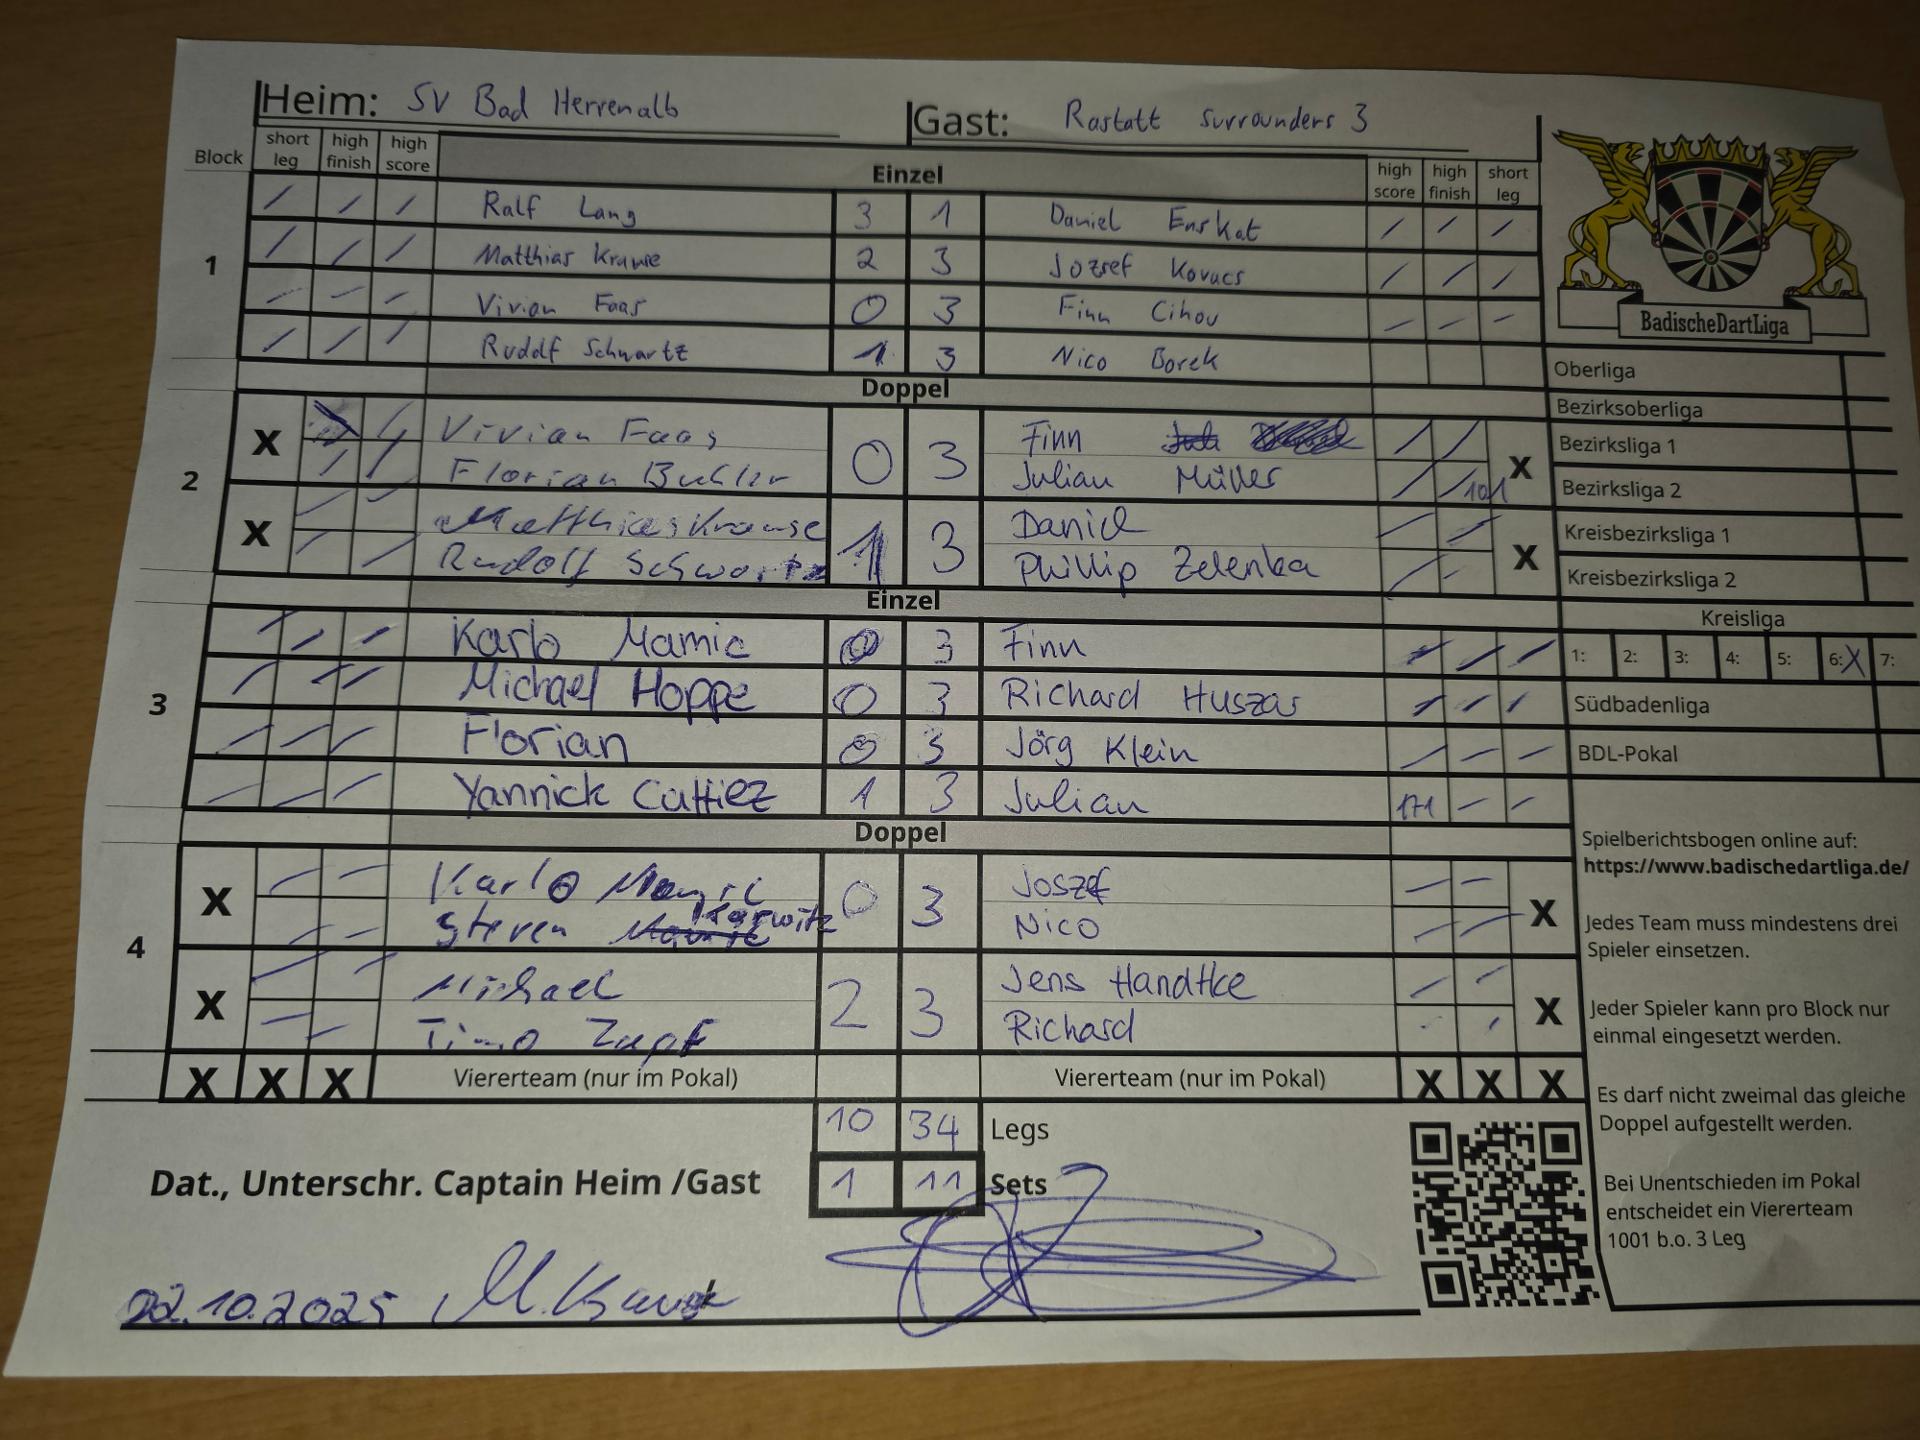 Heim: SV Bad Herrenalb Gast: Rastatt Surrounders 3
Block short leg high finish high score Einzel high score high finish short leg
1
/ / / Ralf Lang 3 1 Daniel Enskat / / /
/ / / Matthias Krause 2 3 Jozsef Kovacs / / /
/ / / Vivian Faas 0 3 Finn Cihov / / /
/ / / Rudolf Schwartz 1 3 Nico Borek
Doppel
2
X / Vivian Faas 0 3 Finn / / X
/ / Florian Buhler Julian Müller / / 101
X / / Matthias Krause 1 3 Daniel / / X
/ / Rudolf Schwartz Phillip Zelenka / -
Einzel
3
/ / / Karlo Mamic 0 3 Finn / / /
/ / / Michael Hoppe 0 3 Richard Huszar / / /
/ / / Florian 0 3 Jörg Klein / / /
/ / / Yannick Cattiez 1 3 Julian 171 / /
Doppel
4
X / / Karlo 0 3 Joszef / / X
/ / Steven Nico / /
X / / Michael 2 3 Jens Handtke / / X
/ / Timo Zapf Richard
X X X Viererteam (nur im Pokal) Viererteam (nur im Pokal) X X X
10 34 Legs
1 11 Sets
Dat., Unterschr. Captain Heim /Gast
22.10.2025 M. Krause
BadischeDartLiga
Oberliga
Bezirksoberliga
Bezirksliga 1
Bezirksliga 2
Kreisbezirksliga 1
Kreisbezirksliga 2
Kreisliga
1: 2: 3: 4: 5: 6: X 7:
Südbadenliga
BDL-Pokal
Spielberichtsbogen online auf:
https://www.badischedartliga.de/
Jedes Team muss mindestens drei
Spieler einsetzen.
Jeder Spieler kann pro Block nur
einmal eingesetzt werden.
Es darf nicht zweimal das gleiche
Doppel aufgestellt werden.
Bei Unentschieden im Pokal
entscheidet ein Viererteam
1001 b.o. 3 Leg